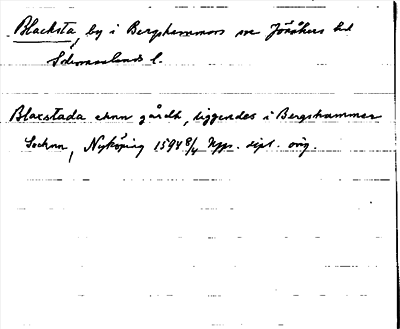 Blacksta, by i Bergshammars sn Jönåkers hd
Södermanlands l.
Blaxstada etnn gårdh, liggendes i Bergshammar
Sochnn, Nyköping 1594 8/4 Upps. dipl. orig.